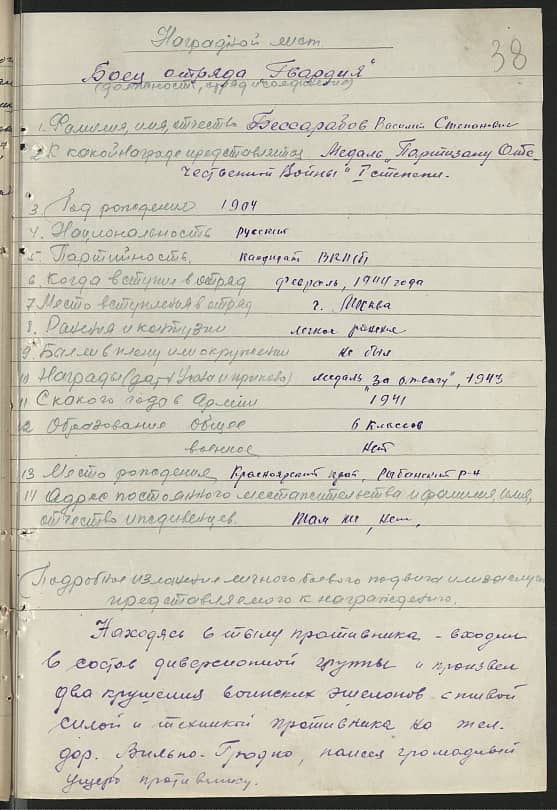 38
Наградной лист.
Боец отряда "Гвардия"
(должность,
1. Фамилия, имя, отчество Бессарабов Василий Степанович
2. К какой награде представляется Медаль "Партизану Оте-
чественной Войны" I степени.
3. Год рождения 1904
4. Национальность русский
5. Партийность. кандидат ВКП(б)
6. Когда вступил в отряд февраль, 1944 года
7. Место вступления в отряд г. Москва
8. Ранения и контузии легкое ранение
9. Был ли в плену или окружении не был
10 Награды (дата Указа и приказа) медаль "за отвагу", 1943
11 С какого года в Армии 1941
12 Образование общее 6 классов
военное нет
13 Место рождения Красноярский край, Рыбинский р-н
14 Адрес постоянного местажительства и фамилия, имя,
отчество иждивенцев. там же, нет,
(Подробное изложение личного боевого подвига или заслуг
представляемого к награждению.
Находясь в тылу противника - входил
в состав диверсионной группы и произвел
два крушения воинских эшелонов с живой
силой и техникой противника на жел.
дор. Вильно-Гродно, нанеся громадный
ущерб противнику.